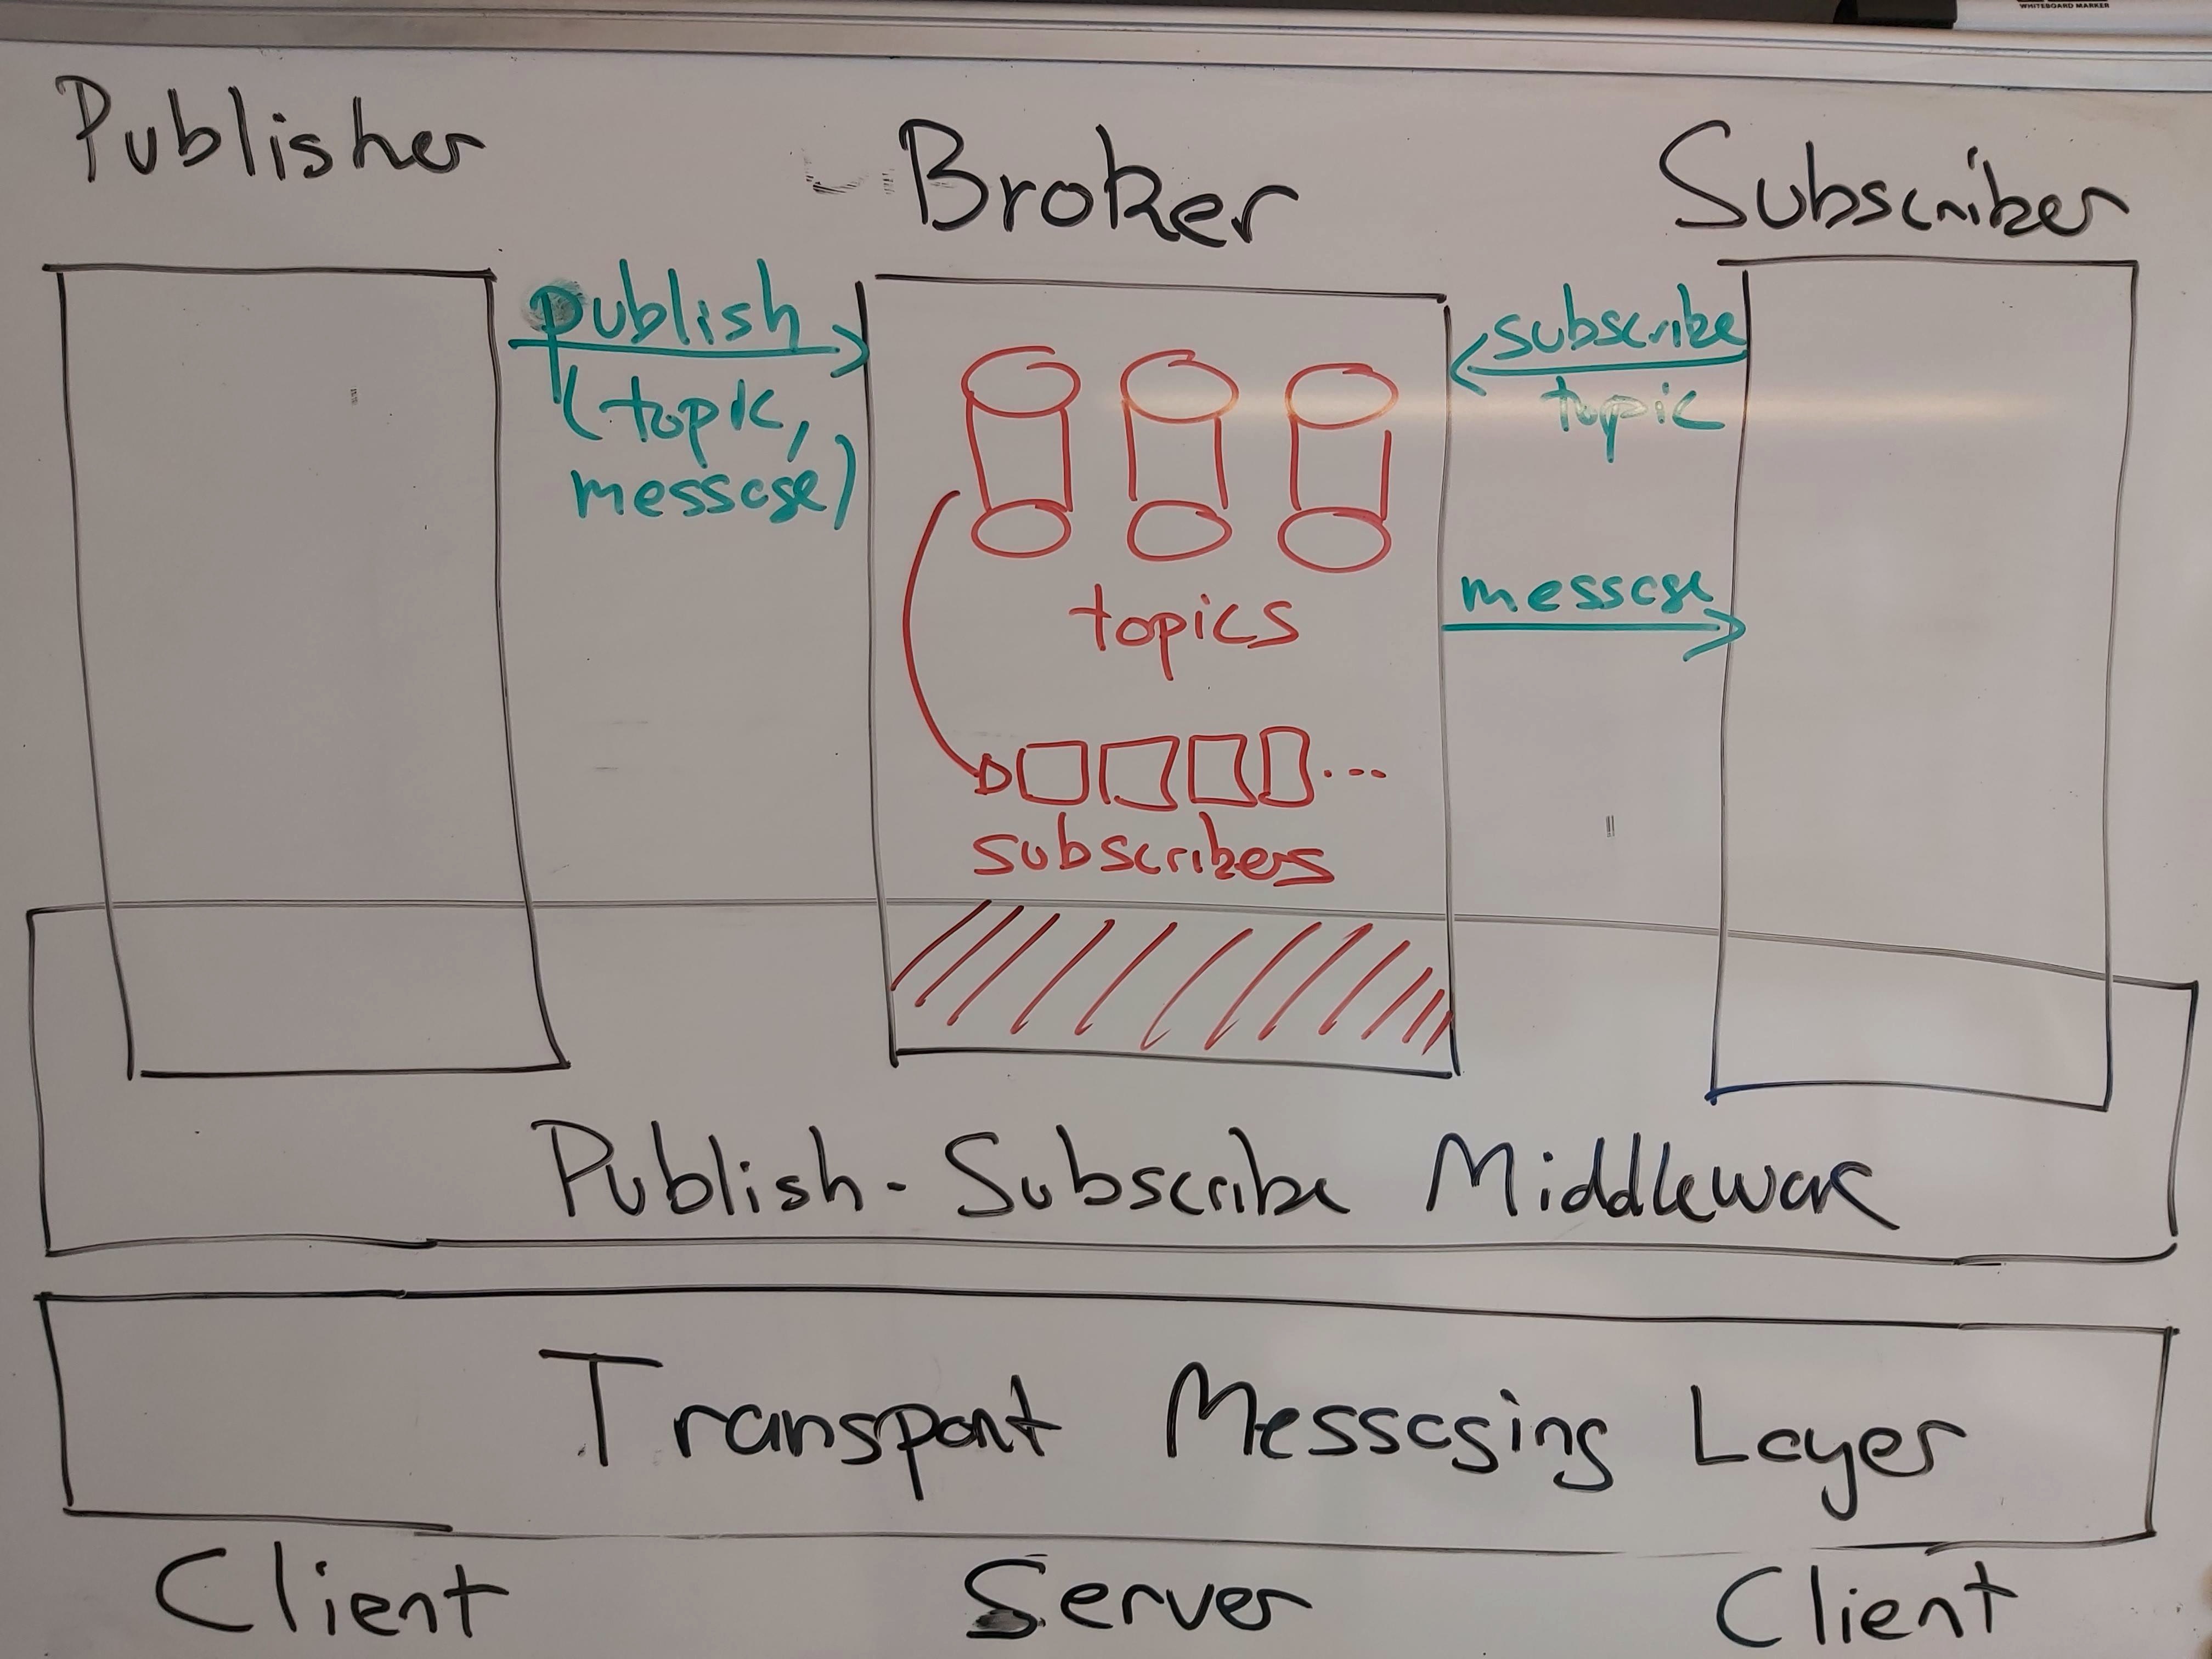 WHITEBOARD MARKER
Publisher
Broker
Subscriber
publish
(topic,
message)
subscribe
topic
message
topics
subscribers
Publish-Subscribe Middleware
Transport Messaging Layer
Client
Server
Client